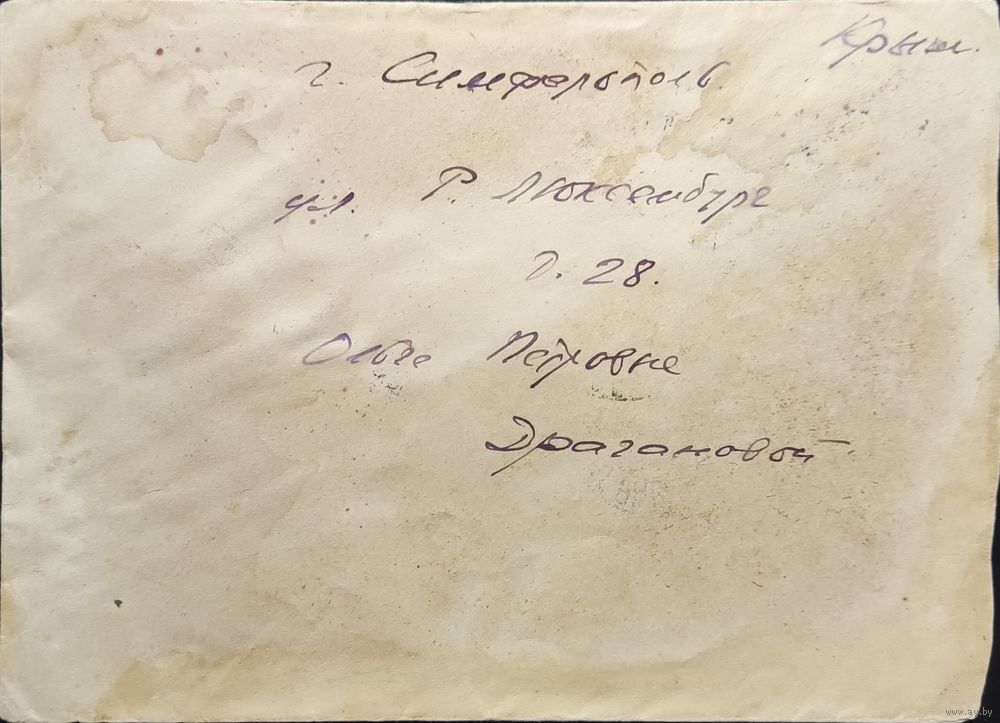 Крым.
г. Симферополь.
ул. Р. Люксембург
д. 28.
Ольге Петровне
Драгановой
www.ay.by